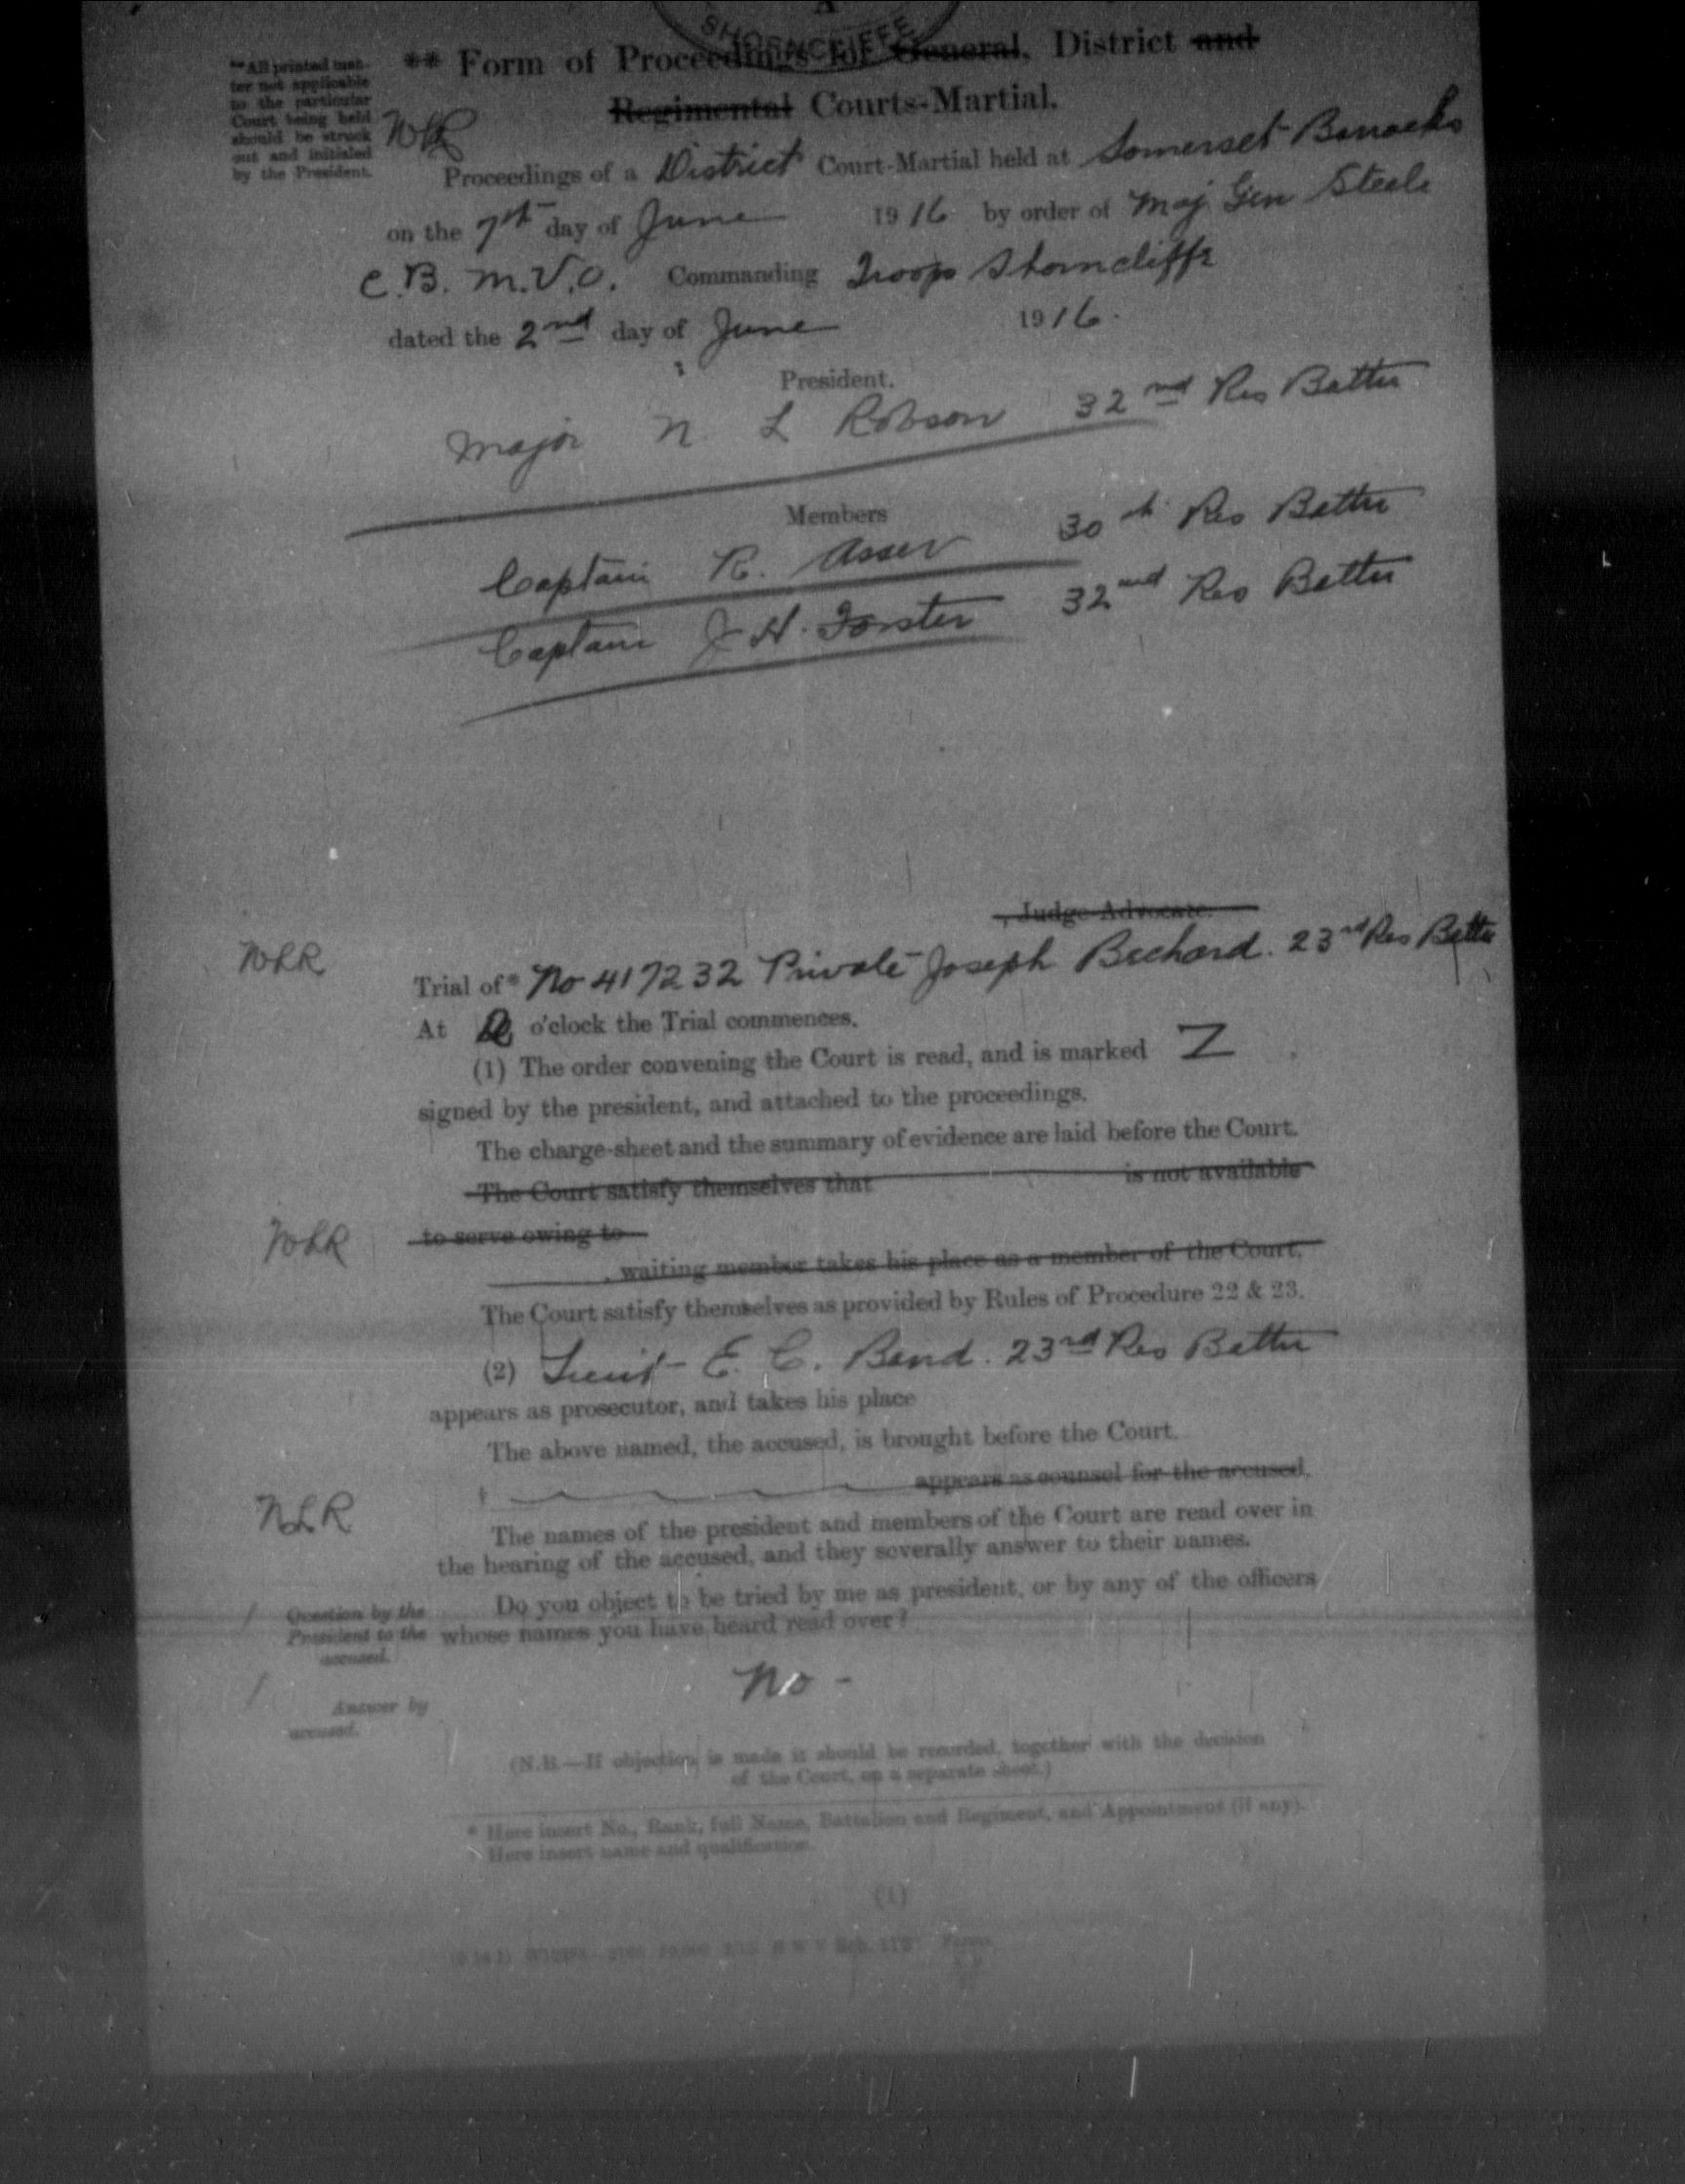 A
SHORNCLIFFE
** Form of Proceedings for General, District and
Regimental Courts-Martial.
**All printed mat-
ter not applicable
to the particular
Court being held
should be struck
out and initialed
by the President.
NLR
Proceedings of a District Court-Martial held at Somerset Barracks
on the 7th day of June 1916 by order of Maj Gen Steele
C.B. M.V.O. Commanding Troops Shorncliffe
dated the 2nd day of June 1916.
President.
Major N L Robson 32nd Res Battn
Members
Captain R. Asser 30th Res Battn
Captain J H. Forster 32nd Res Battn
, Judge-Advocate.
NLR
Trial of* No 417232 Private Joseph Bechard. 23rd Res Battn
At o'clock the Trial commences.
(1) The order convening the Court is read, and is marked Z ,
signed by the president, and attached to the proceedings.
The charge-sheet and the summary of evidence are laid before the Court.
The Court satisfy themselves that is not available
NLR
to serve owing to
, waiting member takes his place as a member of the Court.
The Court satisfy themselves as provided by Rules of Procedure 22 & 23.
(2) Lieut E. C. Bend. 23rd Res Battn
appears as prosecutor, and takes his place
The above named, the accused, is brought before the Court.
† appears as counsel for the accused.
NLR
The names of the president and members of the Court are read over in
the hearing of the accused, and they severally answer to their names.
Question by the
President to the
accused.
Do you object to be tried by me as president, or by any of the officers
whose names you have heard read over?
Answer by
accused.
No -
(N.B.—If objection is made it should be recorded, together with the decision
of the Court, on a separate sheet.)
* Here insert No., Rank, full Name, Battalion and Regiment, and Appointment (if any).
Here insert name and qualification.
(1)